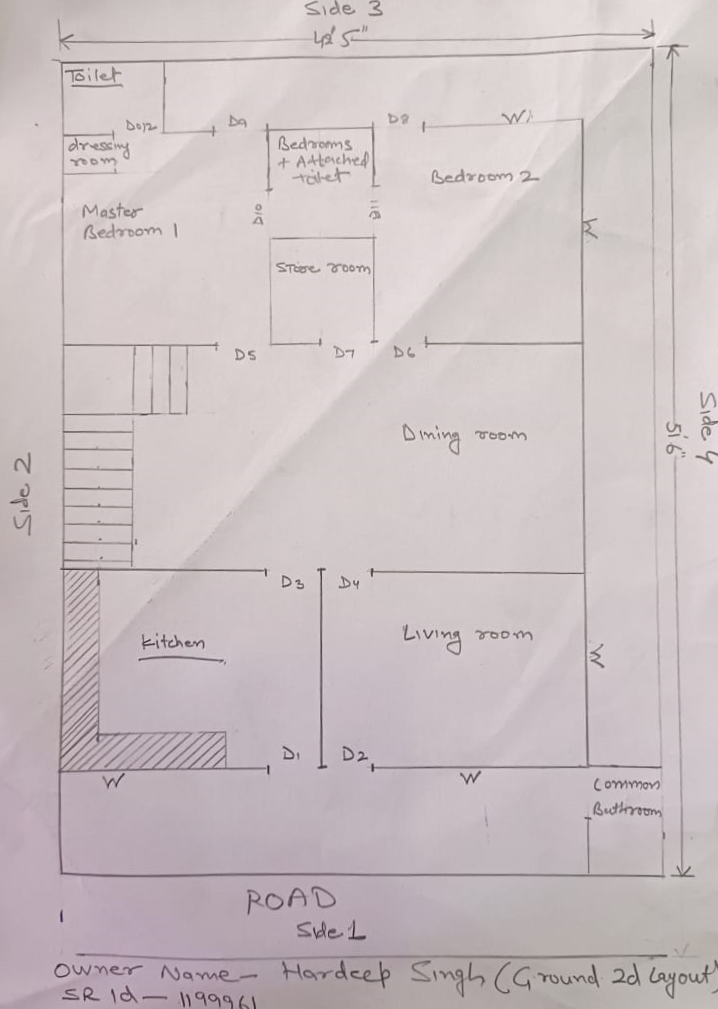 Side 3
42' 5"
Toilet
D012
D9
D8
W
dressing
room
Bedrooms
+ Attached
toilet
Bedroom 2
Master
Bedroom 1
D10
D11
W
Store room
D5
D7
D6
Side 2
Dining room
51'6"
Side 4
D3
D4
Kitchen
Living room
W
D1
D2
W
W
Common
Buthroom
ROAD
Side 1
Owner Name - Hardeep Singh (Ground 2d layout)
SR Id - 1199961